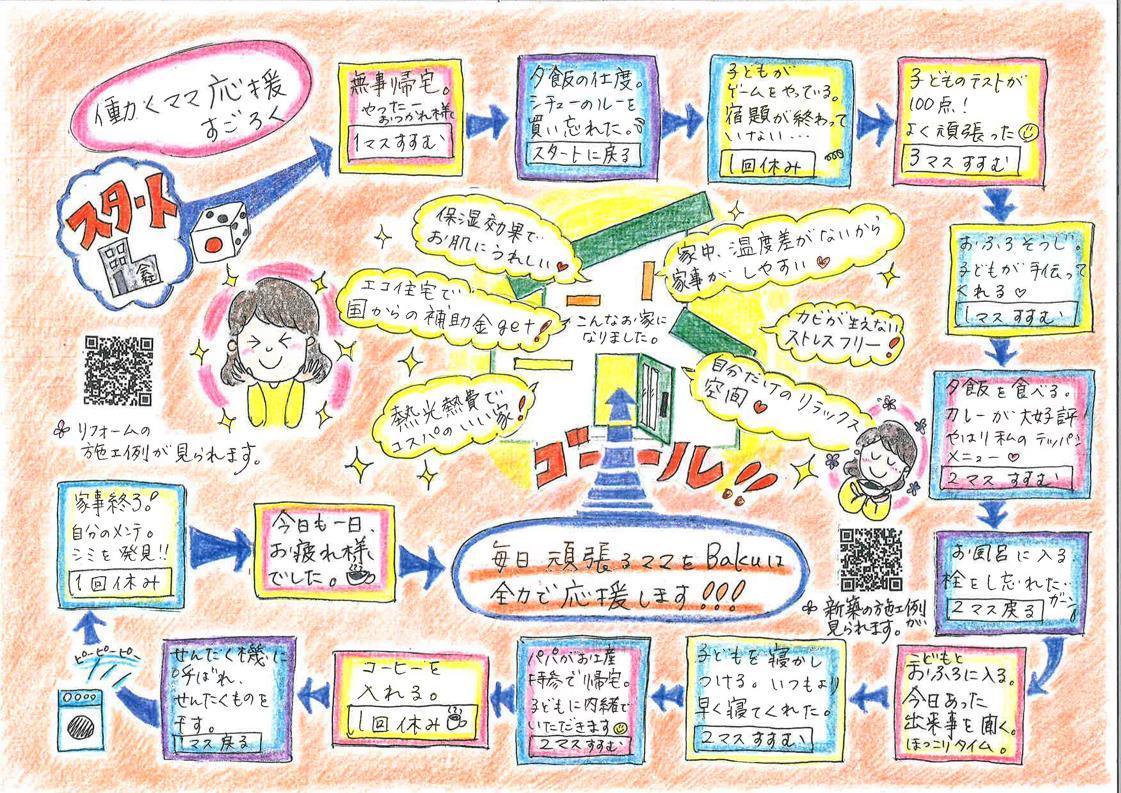 働くママ応援
すごろく
スタート
無事帰宅。
やったー
おつかれ様
1マスすすむ
夕飯の仕度。
シチューのルーを
買い忘れた。
スタートに戻る
子どもが
ゲームをやっている。
宿題が終わって
いけない…
1回休み
子どものテストが
100点!
よく頑張った
3マスすすむ
おふろそうじ。
子どもが手伝って
くれる♡
1マスすすむ
夕飯を食べる。
カレーが大好評
やはり私のテッパン
メニュー♡
2マスすすむ
お風呂に入る
栓をし忘れた…
ガーン
2マス戻る
こどもと
おふろに入る。
今日あった
出来事を聞く。
ほっこりタイム。
子どもを寝かし
つける。いつもより
早く寝てくれた。
2マスすすむ
パパがお土産
持参で帰宅。
子どもに内緒で
いただきます
2マスすすむ
コーヒーを
入れる。
1回休み
せんたく機に
呼ばれ、
せんたくものを
干す。
1マス戻る
ピーピーピー
家事終了。
自分のメンテ。
シミを発見!!
1回休み
今日も一日、
お疲れ様
でした。
毎日頑張るママをBakuは
全力で応援します!!!
ゴール!!
こんなお家に
なりました。
保湿効果で
お肌にうれしい♥
エコ住宅で
国からの補助金get!
熱光熱費で
コスパのいい家!
家中、温度差がないから
家事がしやすい♥
カビが生えない
ストレスフリー!
自分だけのリラックス
空間♥
リフォームの
施工例が見られます。
新築の施工例が
見られます。